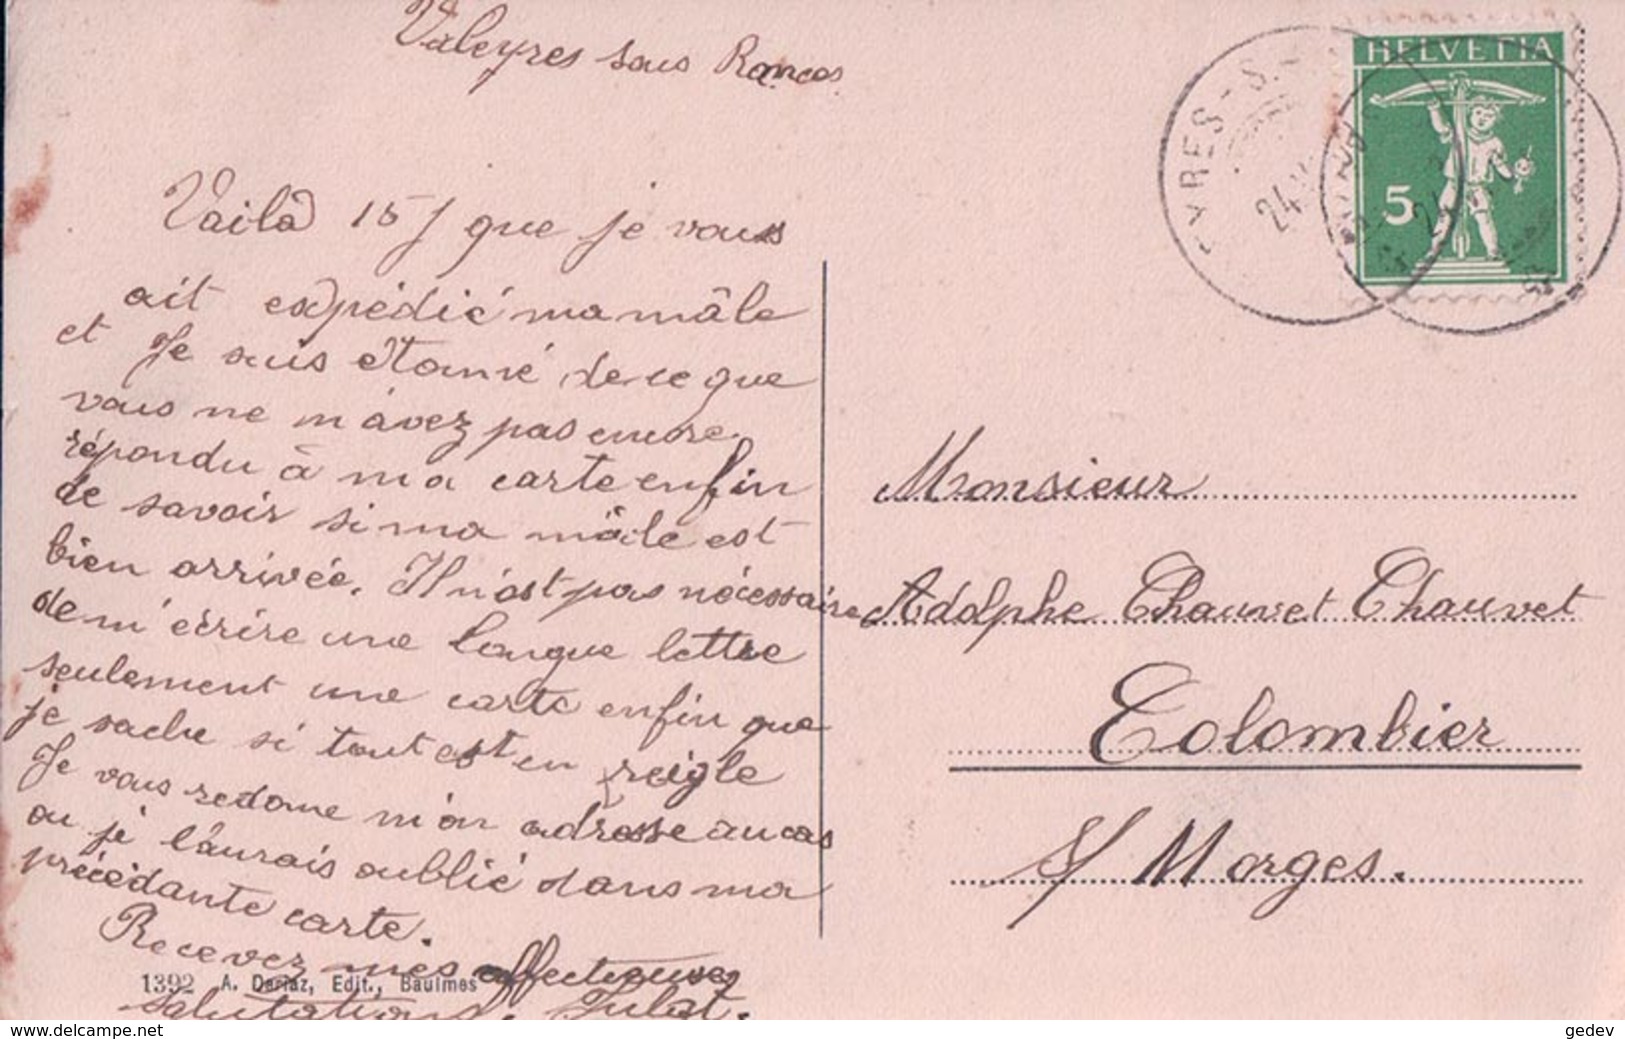 Valeyres sous Rances
HELVETIA
5
YRES-S.-
24
24
Voilà 15 j que je vous
ait expédié ma mâle
et Je suis étonné de ce que
vous ne m'avez pas encore
répondu à ma carte enfin
de savoir si ma mâle est
bien arrivée. Il n'est pas nécessaire
de m'écrire une longue lettre
seulement une carte enfin que
je sache si tout est en reigle
Je vous redonne m'on adresse au cas
ou je l'aurais oublié dans ma
précédante carte.
Recevez mes affectueuses
salutations.
Monsieur
Adolphe Chauvet Chauvet
Colombier
s/ Morges.
1392 A. Deriaz, Edit., Baulmes
www.delcampe.net
gedev